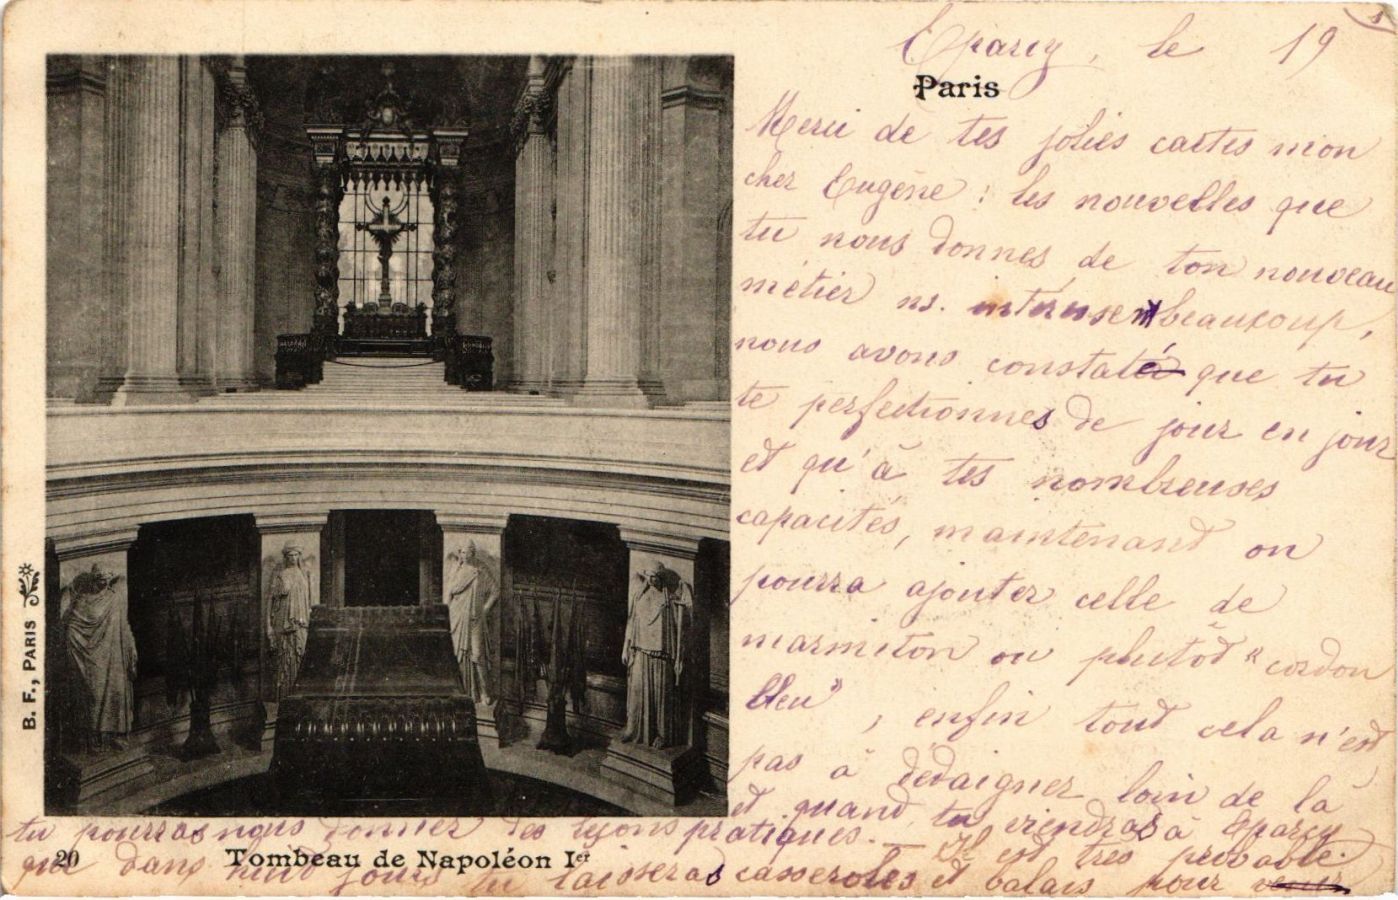 Eparcy, le 19
Paris
Merci de tes jolies cartes mon
cher Eugène : les nouvelles que
tu nous donnes de ton nouveau
métier ns. beaucoup,
nous avons constaté que tu
te perfectionnes de jour en jour
et qu'à tes nombreuses
capacités, maintenant on
pourra ajouter celle de
marmiton ou plutôt "cordon
bleu", enfin tout cela n'est
pas à dédaigner loin de là
et quand tu viendras à Eparcy
tu pourras nous donner des leçons pratiques. — Il est très probable
que dans huit jours tu laisseras casseroles et balais pour
20 Tombeau de Napoléon Ier
B. F., PARIS